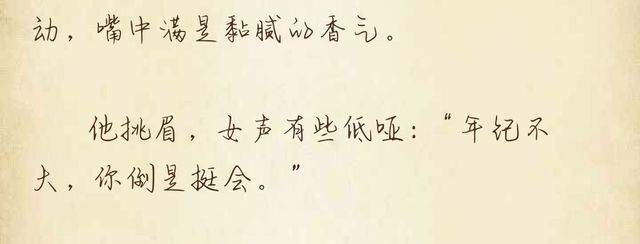 动，嘴中满是黏腻的香气。
他挑眉，女声有些低哑：“年纪不
大，你倒是挺会。”